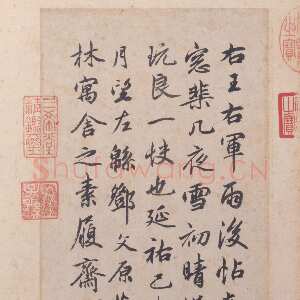 右王右軍雨後帖
窓棐几夜雪初晴
玩良一快也延祐己
月望左綿鄧文原
林寓舍之素履齋